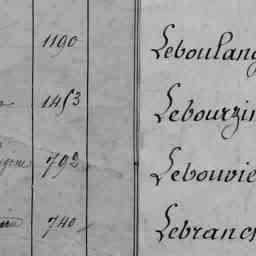 1190 Leboulang
1453 Lebourgin
792 Lebouvie
740 Lebranch